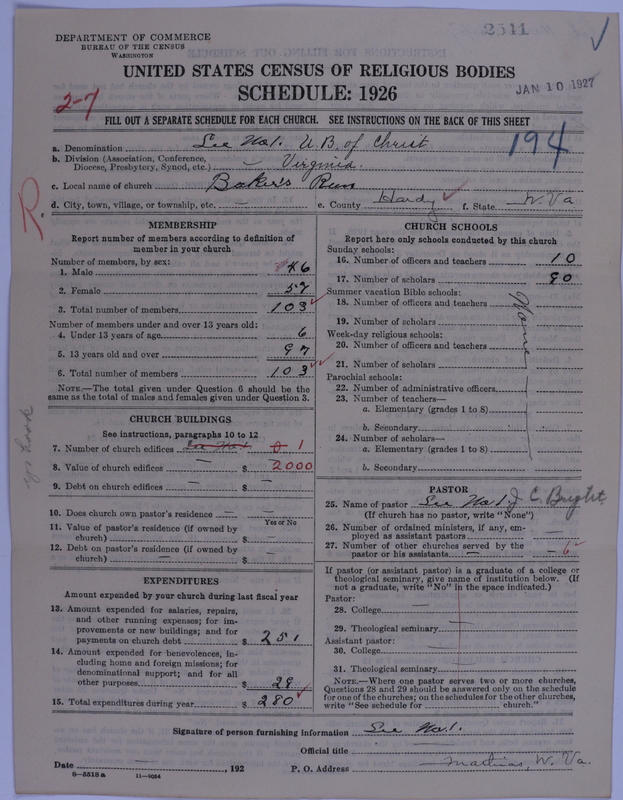 2511
DEPARTMENT OF COMMERCE
BUREAU OF THE CENSUS
WASHINGTON
UNITED STATES CENSUS OF RELIGIOUS BODIES
SCHEDULE: 1926
JAN 10 1927
2-7
FILL OUT A SEPARATE SCHEDULE FOR EACH CHURCH. SEE INSTRUCTIONS ON THE BACK OF THIS SHEET
194
a. Denomination See No 1. U.B. of Christ
b. Division (Association, Conference, Diocese, Presbytery, Synod, etc.) — Virginia.
c. Local name of church Baker's Run
d. City, town, village, or township, etc. — e. County Hardy f. State W. Va
MEMBERSHIP
Report number of members according to definition of
member in your church
Number of members, by sex:
1. Male 46
2. Female 57
3. Total number of members 103
Number of members under and over 13 years old:
4. Under 13 years of age 6
5. 13 years old and over 97
6. Total number of members 103
NOTE.—The total given under Question 6 should be
the same as the total of males and females given under Question 3.
CHURCH BUILDINGS
See instructions, paragraphs 10 to 12
7. Number of church edifices See No 1 1
8. Value of church edifices — $ 2000
9. Debt on church edifices — $
10. Does church own pastor's residence — —
Yes or No
11. Value of pastor's residence (if owned by
church) — $ —
12. Debt on pastor's residence (if owned by
church) — $
EXPENDITURES
Amount expended by your church during last fiscal year
13. Amount expended for salaries, repairs,
and other running expenses; for im-
provements or new buildings; and for
payments on church debt $ 251
14. Amount expended for benevolences, in-
cluding home and foreign missions; for
denominational support; and for all
other purposes $ 29
15. Total expenditures during year $ 280
CHURCH SCHOOLS
Report here only schools conducted by this church
Sunday schools:
16. Number of officers and teachers 10
17. Number of scholars 90
Summer vacation Bible schools:
18. Number of officers and teachers
19. Number of scholars
None
Week-day religious schools:
20. Number of officers and teachers
21. Number of scholars
Parochial schools:
22. Number of administrative officers
23. Number of teachers—
a. Elementary (grades 1 to 8)
b. Secondary
24. Number of scholars—
a. Elementary (grades 1 to 8)
b. Secondary
PASTOR
25. Name of pastor See No 1. J C. Bright
(If church has no pastor, write "None")
26. Number of ordained ministers, if any, em-
ployed as assistant pastors —
27. Number of other churches served by the
pastor or his assistants — 6
If pastor (or assistant pastor) is a graduate of a college or
theological seminary, give name of institution below. (If
not a graduate, write "No" in the space indicated.)
Pastor:
28. College —
29. Theological seminary —
Assistant pastor:
30. College
31. Theological seminary
NOTE.—Where one pastor serves two or more churches,
Questions 28 and 29 should be answered only on the schedule
for one of the churches; on the schedules for the other churches,
write "See schedule for church."
Signature of person furnishing information See No. 1.
Official title —
Date —, 192 P. O. Address Mathias, W. Va.
8-5518 a 11-9034